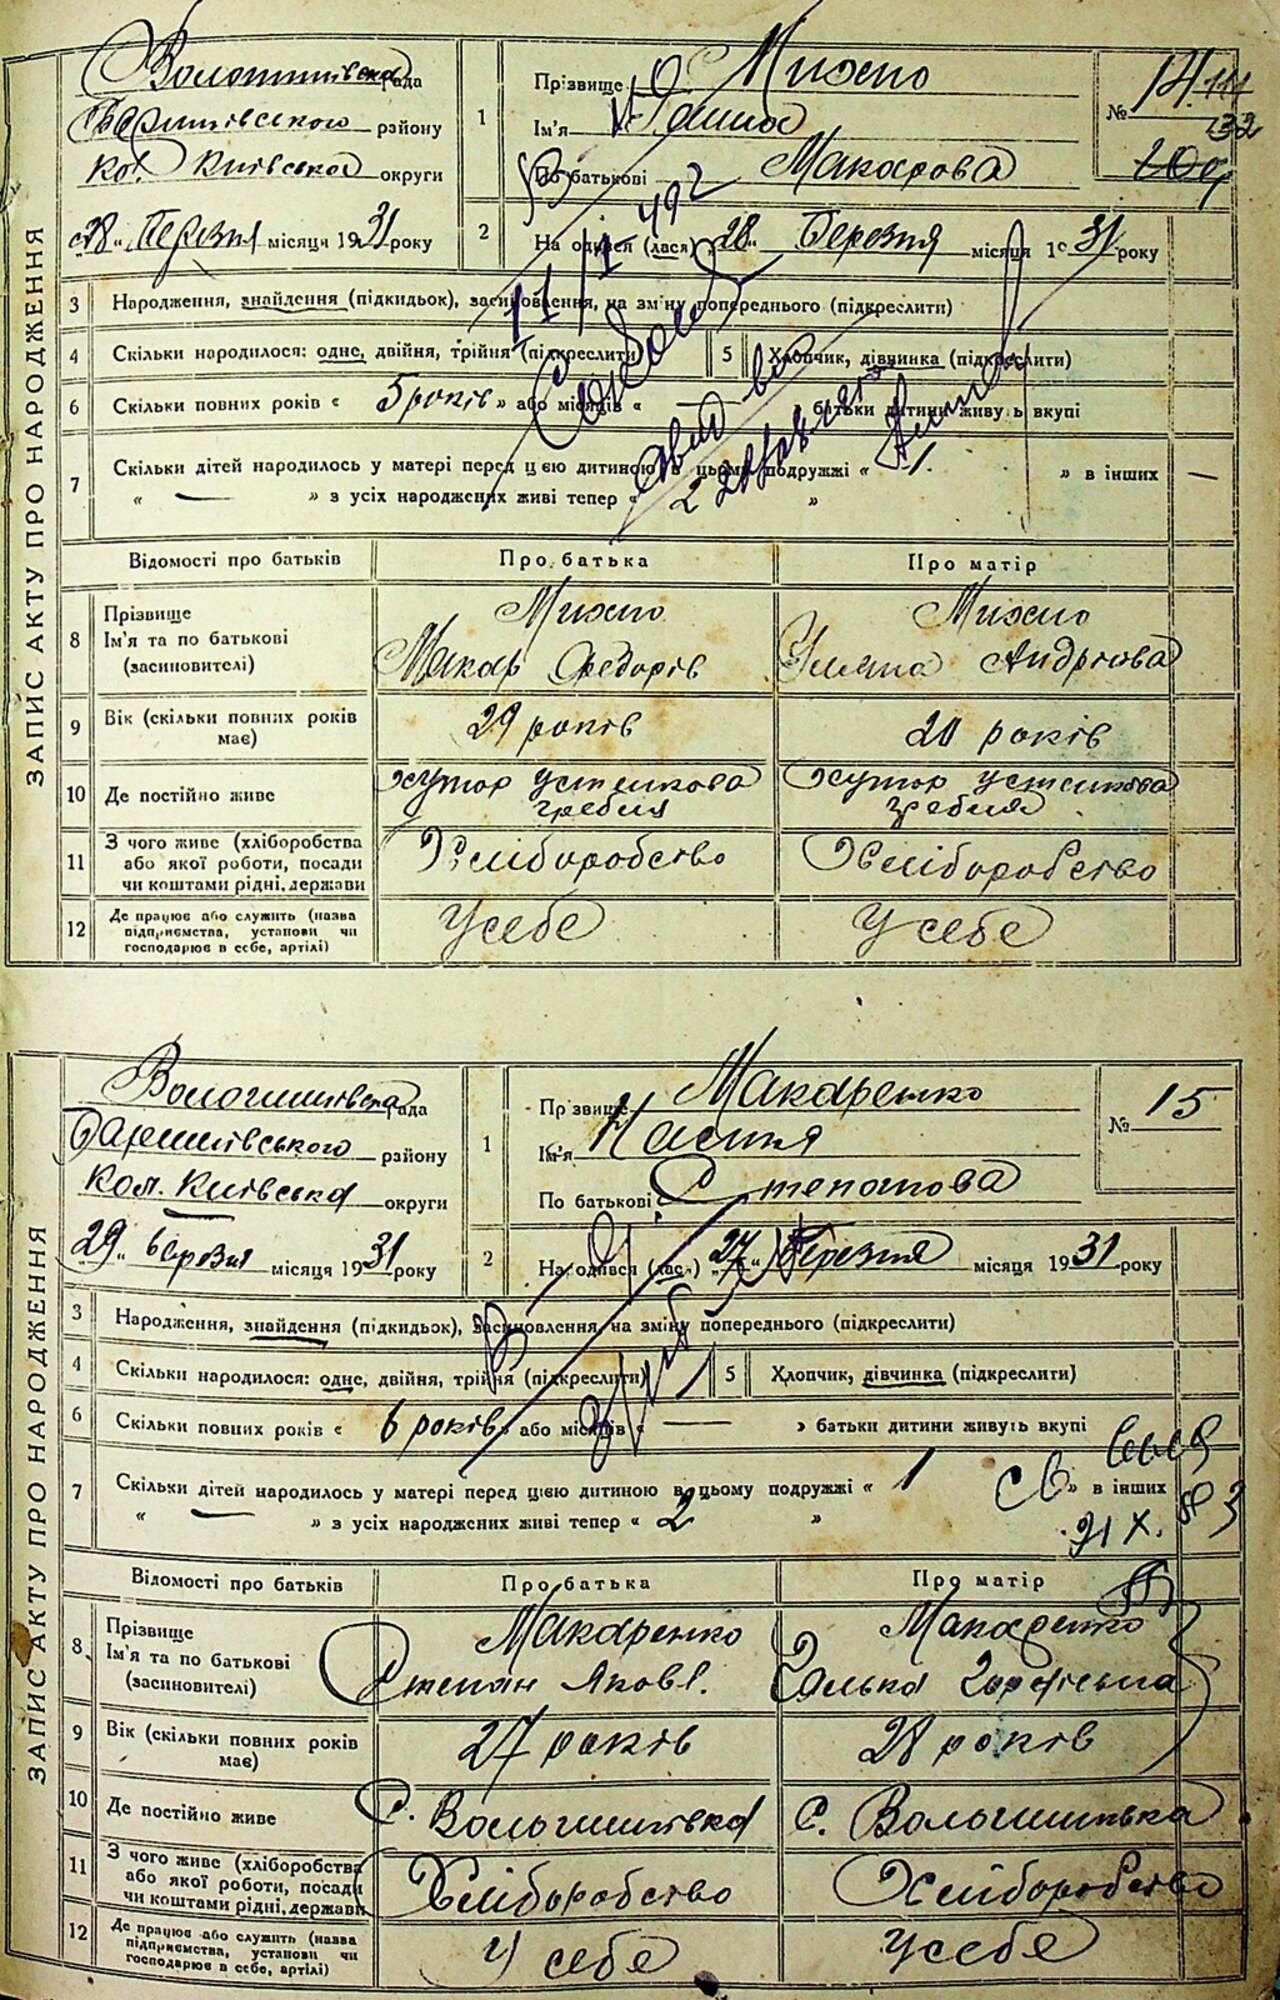 ЗАПИС АКТУ ПРО НАРОДЖЕННЯ
Волошинівська рада
Баришівського району
кол. Київська округи
„28“ Березня місяця 1931 року
1
Прізвище Михно
Ім'я Ганна
По батькові Макарова
№ 14
2
На одився (лася) „28“ Березня місяця 1931 року
3 Народження, знайдення (підкидьок), засиновлення, на зміну попереднього (підкреслити)
4 Скільки народилося: одне, двійня, трійня (підкреслити) 5 Хлопчик, дівчинка (підкреслити)
6 Скільки повних років « 5 років » або місяців « — батьки дитини живуть вкупі
7 Скільки дітей народилось у матері перед цією дитиною в цьому подружжі « 1. » в інших —
« — » з усіх народжених живі тепер « 2 »
Відомості про батьків Про батька Про матір
8 Прізвище Ім'я та по батькові (засиновителі)
Михно Михно
Макар Федорів Уляна Андріова
9 Вік (скільки повних років має) 29 років 20 років
10 Де постійно живе хутор устенкова гребля хутор устенкова гребля
11 З чого живе (хліборобства або якої роботи, посади чи коштами рідні, держави Хліборобство Хліборобство
12 Де працює або служить (назва підприємства, установи чи господарює в себе, артілі) У себе У себе
ЗАПИС АКТУ ПРО НАРОДЖЕННЯ
Волошинівська рада
Баришівського району
кол. Київська округи
„29“ березня місяця 1931 року
1
Прізвище Макаренко
Ім'я Настя
По батькові Степанова
№ 15
2
На одився (лас ) „27“ Березня місяця 1931 року
3 Народження, знайдення (підкидьок), засиновлення, на зміну попереднього (підкреслити)
4 Скільки народилося: одне, двійня, трійня (підкреслити) 5 Хлопчик, дівчинка (підкреслити)
6 Скільки повних років « 6 років » або місяців « — » батьки дитини живуть вкупі
7 Скільки дітей народилось у матері перед цією дитиною в цьому подружжі « 1 » в інших
« — » з усіх народжених живі тепер « 2 »
Відомості про батьків Про батька Про матір
8 Прізвище Ім'я та по батькові (засиновителі)
Макаренко Макаренко
Степан Яковл. Галька
9 Вік (скільки повних років має) 27 років 28 років
10 Де постійно живе С. Волошинівка С. Волошинівка
11 З чого живе (хліборобства або якої роботи, посади чи коштами рідні, держави Хліборобство Хліборобство
12 Де працює або служить (назва підприємства, установи чи господарює в себе, артілі) У себе У себе